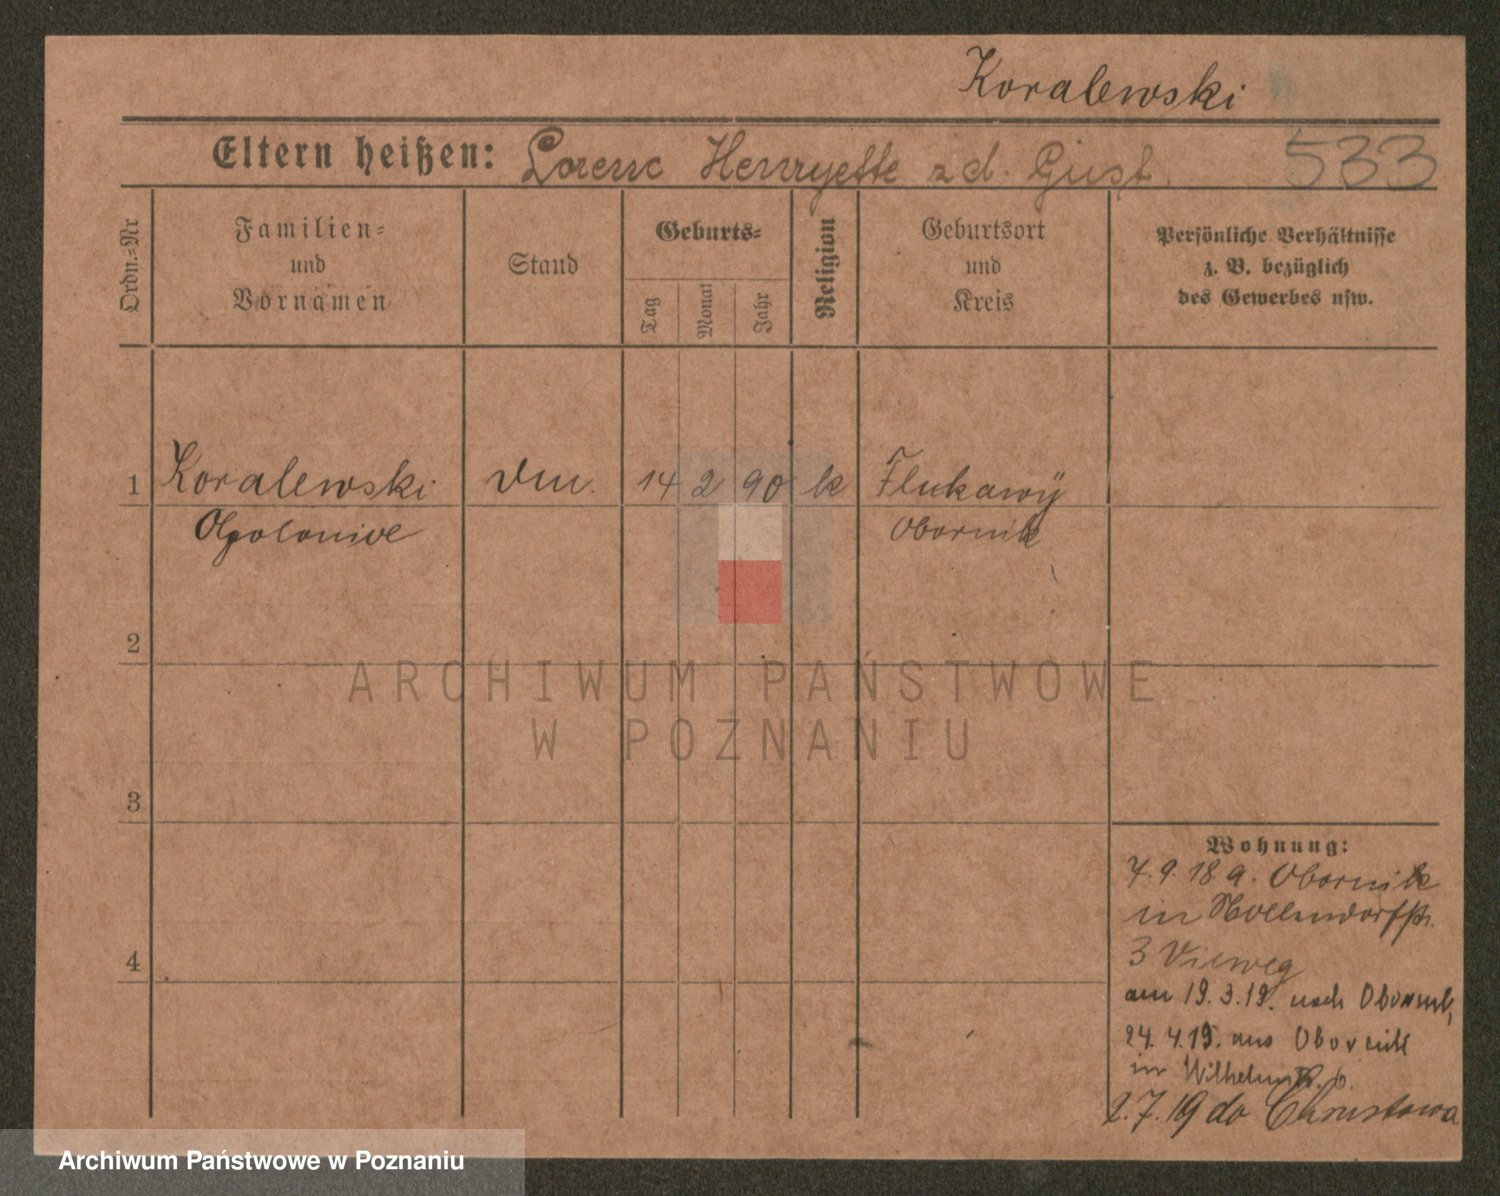 Koralewski
Eltern heißen: Lorenc Henryette zd. Gust. 533
Ordn.=Nr
Familien=
und
Vornamen
Stand
Geburts=
Tag
Monat
Jahr
Religion
Geburtsort
und
Kreis
Persönliche Verhältnisse
z. B. bezüglich
des Gewerbes usw.
1 Koralewski 14 2 90 k
Obornik
2
ARCHIWUM PAŃSTWOWE
W POZNANIU
3
4
Wohnung:
7.9.18 a. Obornik
in
3 Vieweg
am 19.3.19. nach Obornik,
24.4.19. aus Obornik
in Wilhelmstr. 6.
2.7.19 do Chrustowa
Archiwum Państwowe w Poznaniu